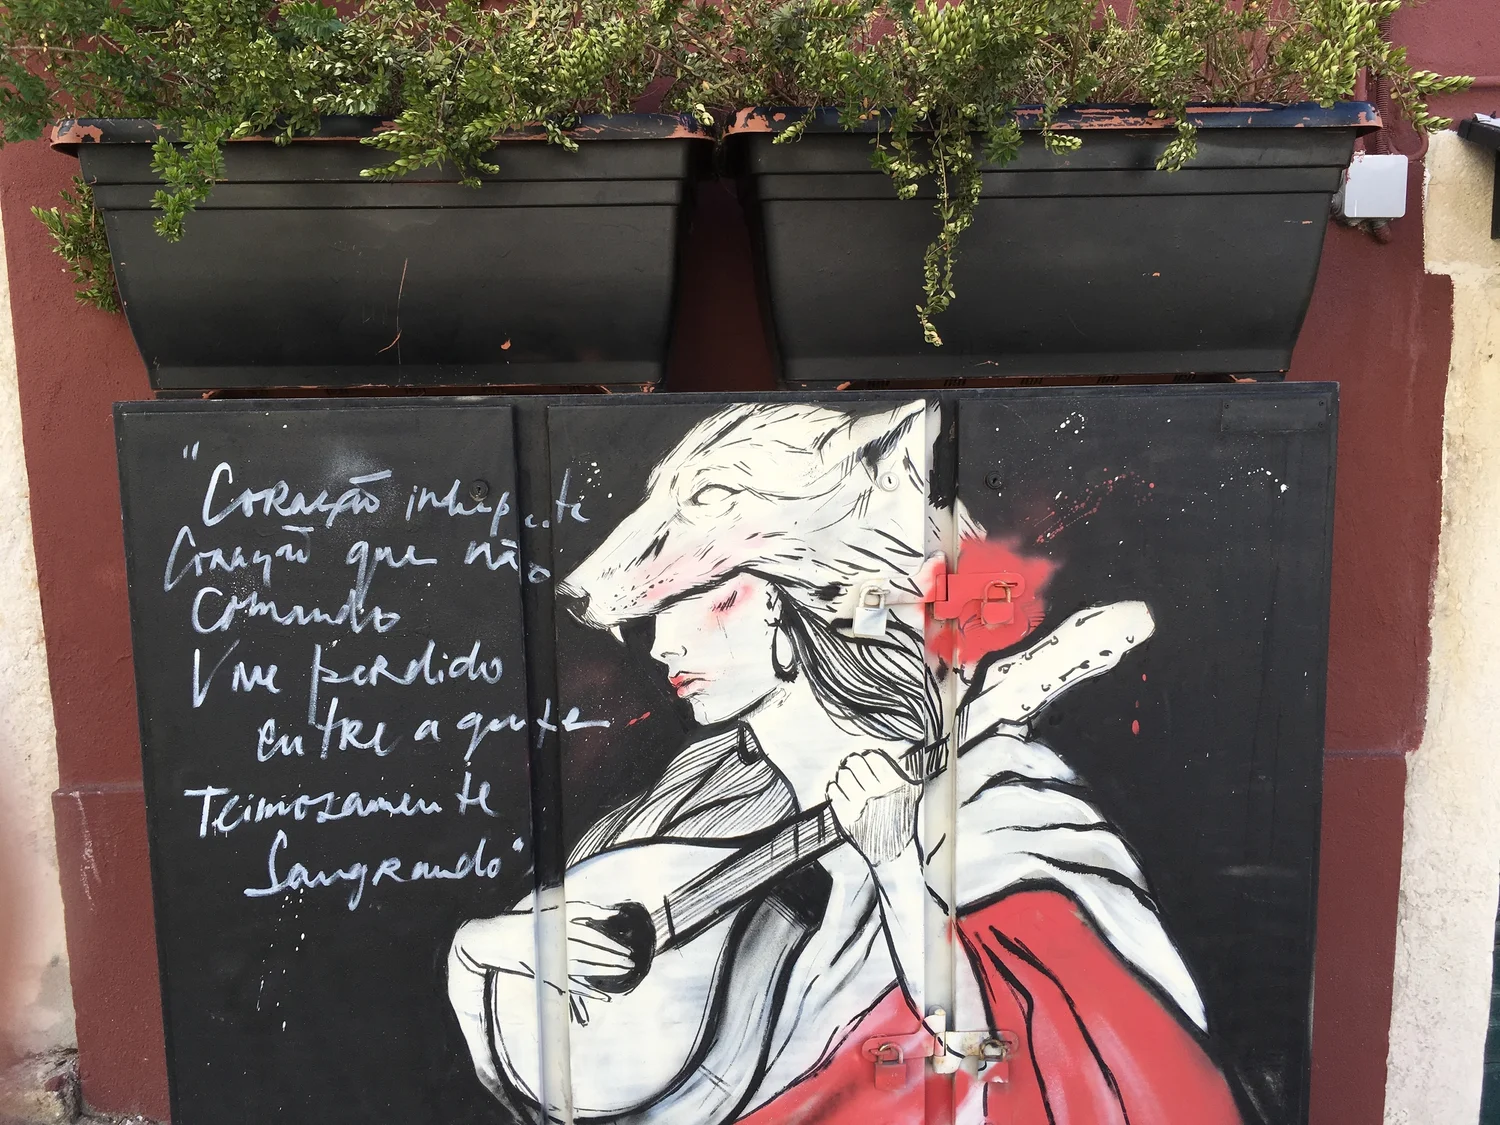 "Coração indepente
Coração que não
Comando
Vive perdido
entre a gente
Teimosamente
Sangrando"